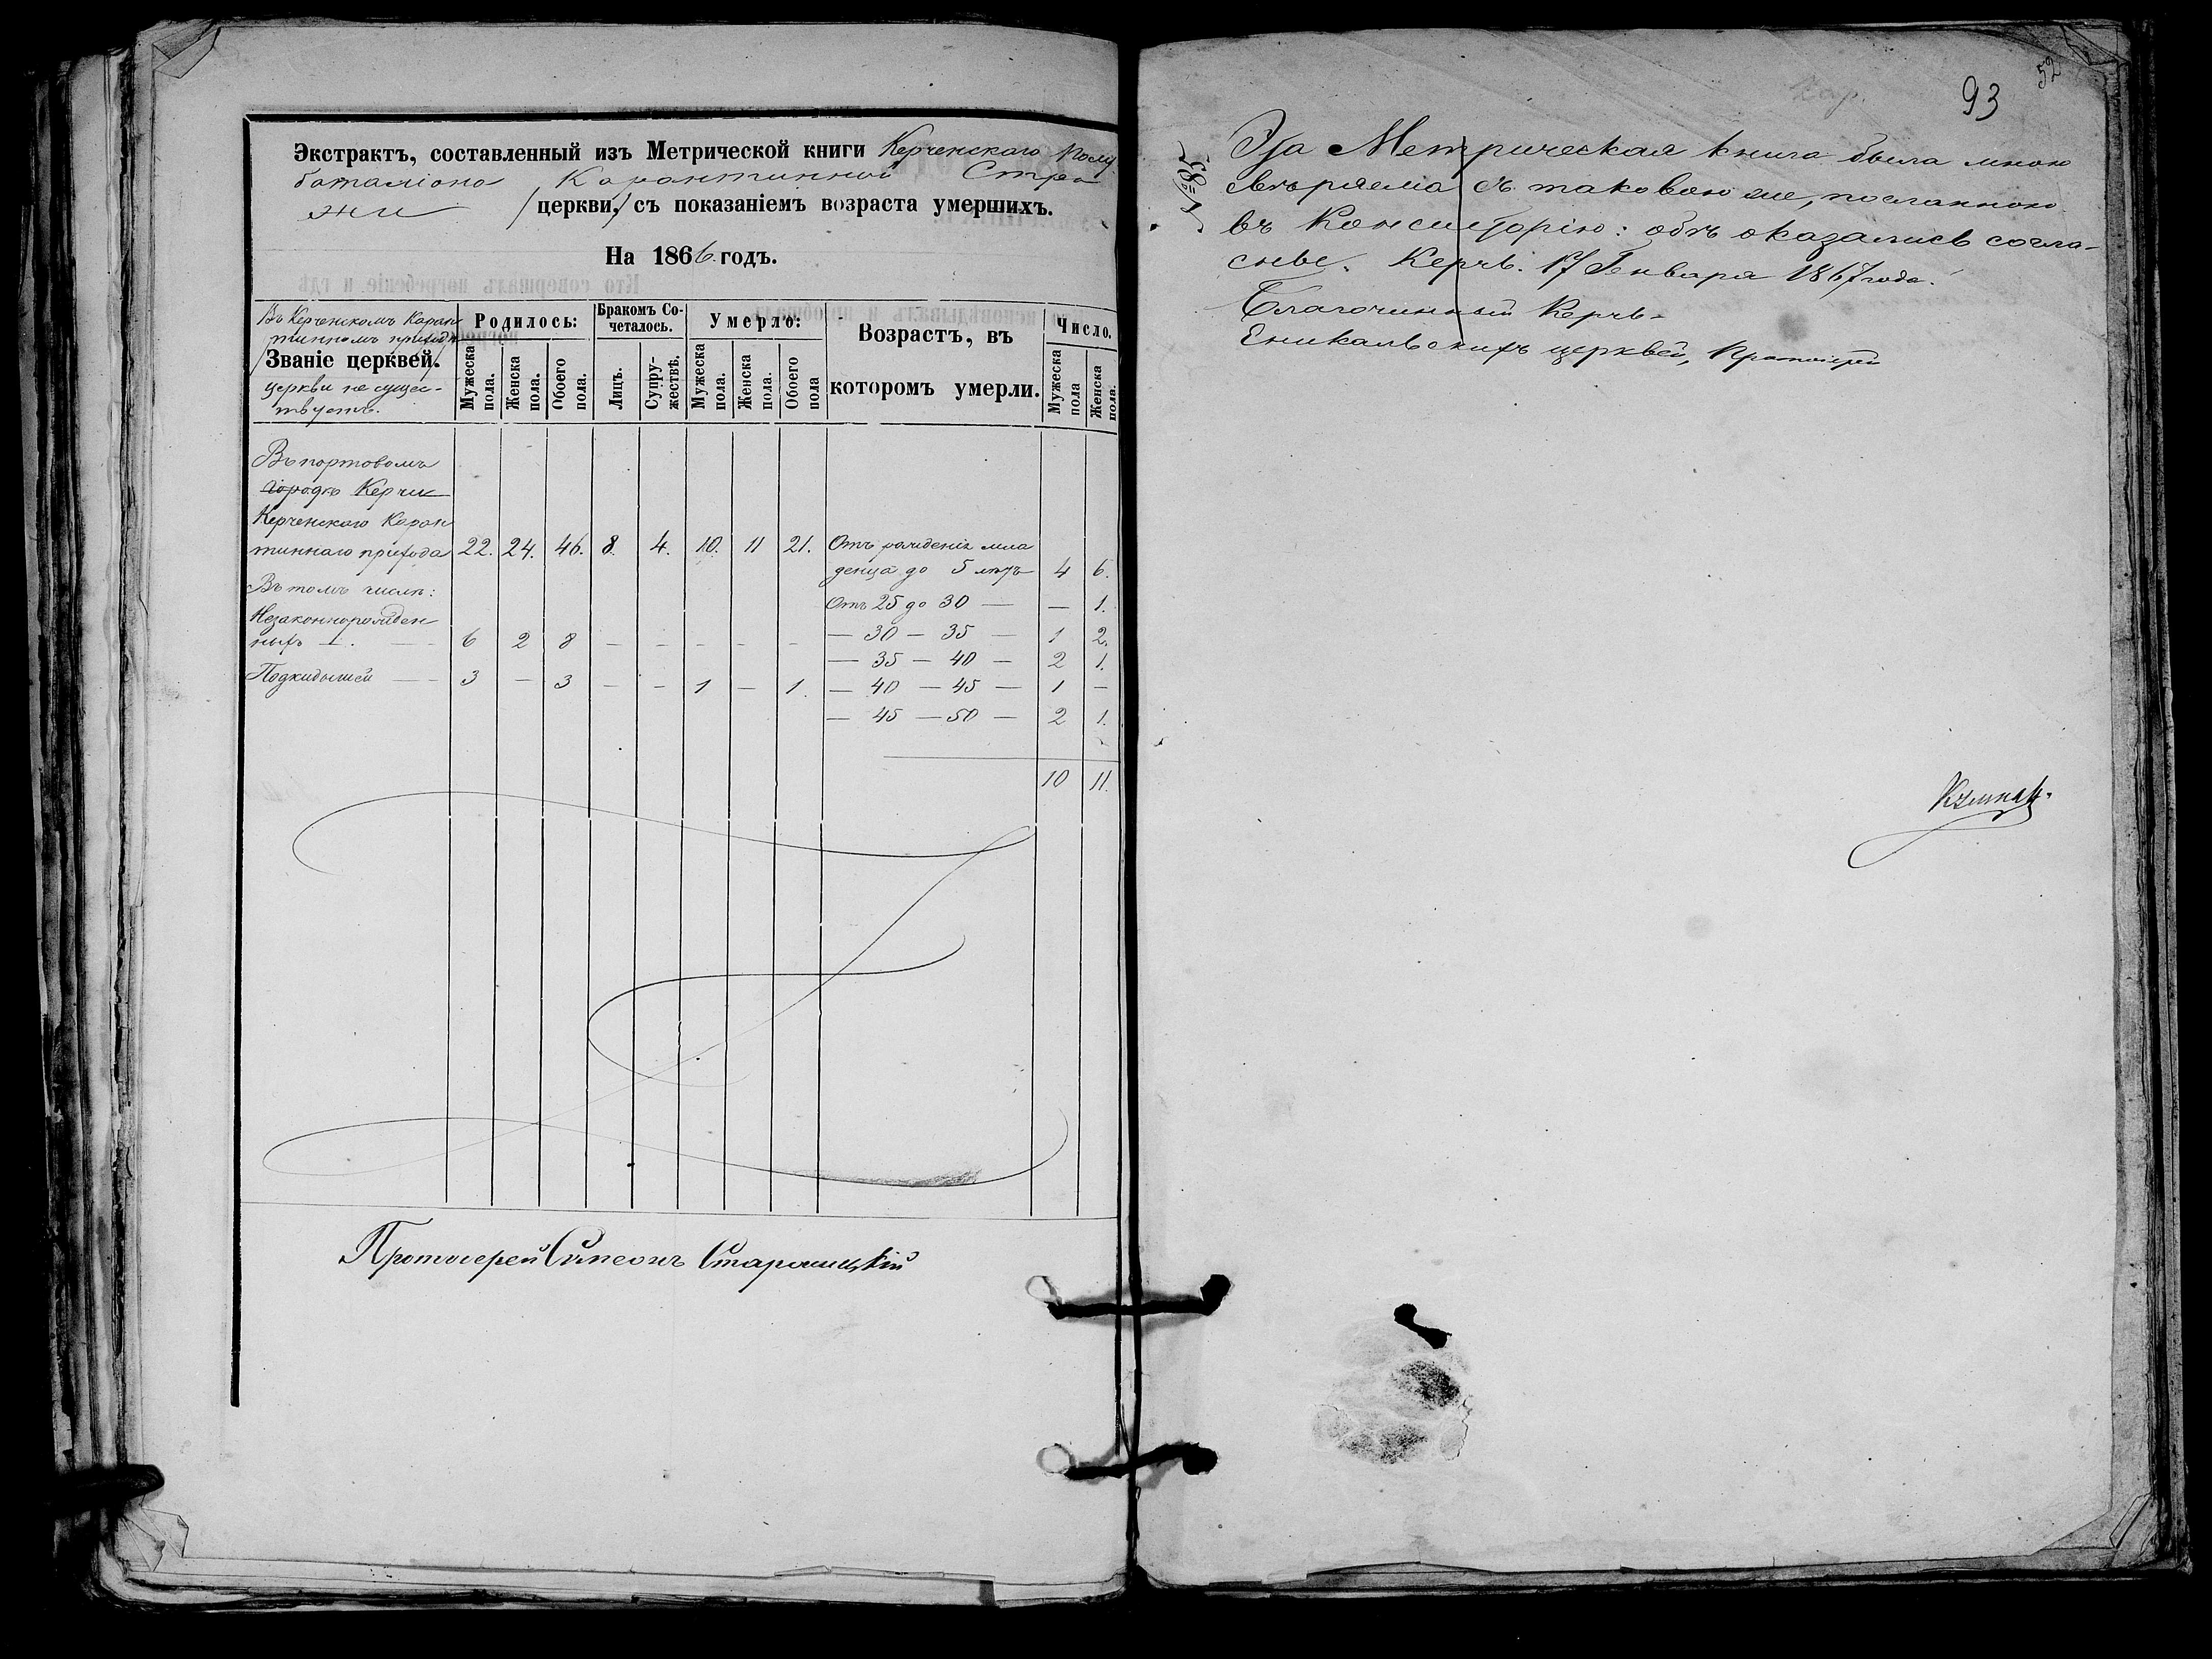 Экстрактъ, составленный изъ Метрической книги Керченскаго Полу
баталіона Карантинной Стра
жи /церкви,/ съ показаніемъ возраста умершихъ.
На 1866 годъ.
Въ Керченскомъ Каран
тинномъ приходѣ
Званіе церквей.
церкви не сущес-
твуетъ.
Родилось:
Мужеска пола.
Женска пола.
Обоего пола.
Бракомъ Со-
четалось.
Лицъ.
Супру-
жествъ.
Умерло:
Мужеска пола.
Женска пола.
Обоего пола
Возрастъ, въ
которомъ умерли.
Число.
Мужеска пола
Женска пола.
Въ портовомъ
городѣ Керчи
Керченскаго Каран
тиннаго прихода 22. 24. 46. 8. 4. 10. 11 21. Отъ рожденія мла
денца до 5 лѣтъ 4 6.
Въ томъ числѣ:
Отъ 25 до 30 — — 1.
Незаконнорожден
ныхъ — 6 2 8 — — — — — — 30 — 35 — 1 2.
— 35 — 40 — 2 1.
Подкидышей — — 3 — 3 — — 1 — 1. — 40 — 45 — 1 —
— 45 — 50 — 2 1.
10 11.
Протоіерей Симеонъ
93
52
Эта Метрическая книга была мною
свѣряема съ таковою же, посланною
въ Консисторію: обѣ оказались согла-
сны. Керчь. 17 Генваря 1867 года.
Благочинный Керчь-
Еникальскихъ церквей, Протоіерей